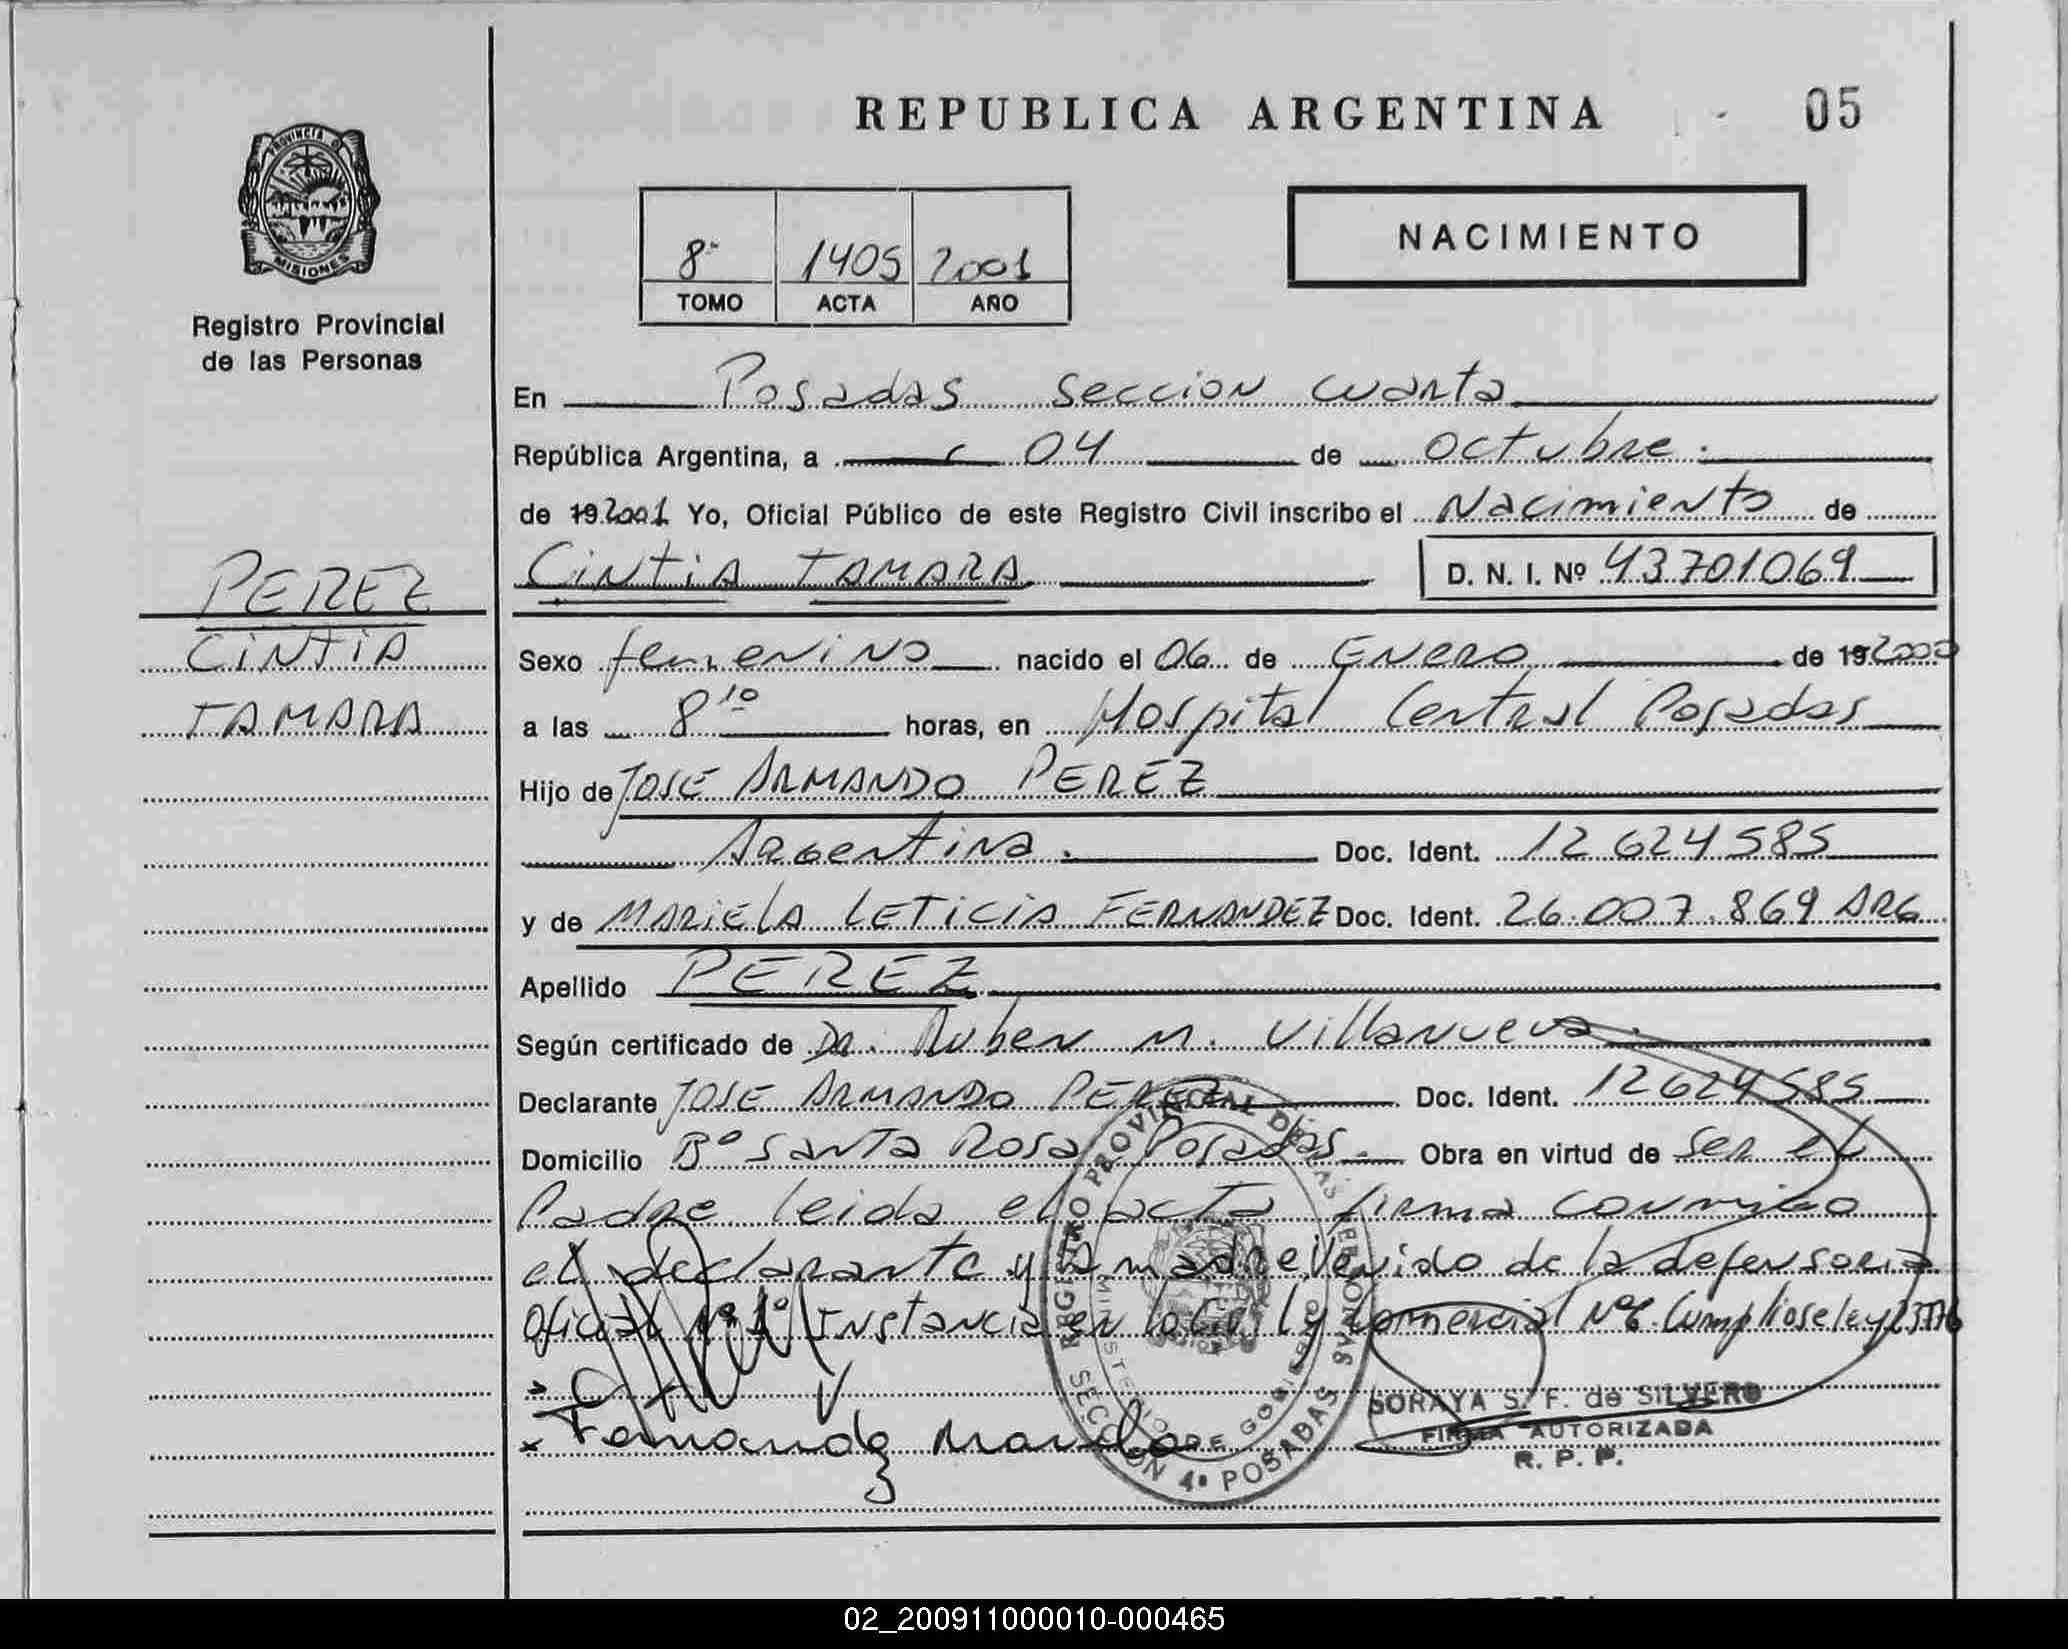 REPUBLICA ARGENTINA
05
PROVINCIA D
MISIONES
Registro Provincial
de las Personas
8ª 1405 2001
TOMO ACTA AÑO
NACIMIENTO
En Posadas seccion cuarta
República Argentina, a 04 de octubre.
de 19 2001 Yo, Oficial Público de este Registro Civil inscribo el Nacimiento de
Cintia TAMARA D. N. I. Nº 43701069
PEREZ
CINTIA
TAMARA
Sexo femenino nacido el 06 de Enero de 19 2000
a las 8 10 horas, en Hospital Central Posadas
Hijo de JOSE ARMANDO PEREZ
Argentina. Doc. Ident. 12 624 585
y de MARIELA LETICIA FERNANDEZ Doc. Ident. 26.007.869 ARG
Apellido PEREZ
Según certificado de Dr. Ruben M. Villanueva.
Declarante JOSE ARMANDO PEREZ Doc. Ident. 12624585
Domicilio Bº Santa Rosa Posadas. Obra en virtud de ser el
Padre leida el acta firma conmigo
el declarante y la madre Venido de la defensoria
oficial Nº 1º Instancia en lo Civil y Comercial Nº6. Cumpliose ley
Fernandez Mariela
REGISTRO PROVINCIAL DE LAS PERSONAS
MINISTERIO DE GOBIERNO
SECCION 4ª POSADAS
SORAYA S. F. de SILVERO
FIRMA AUTORIZADA
R. P. P.
02_200911000010-000465